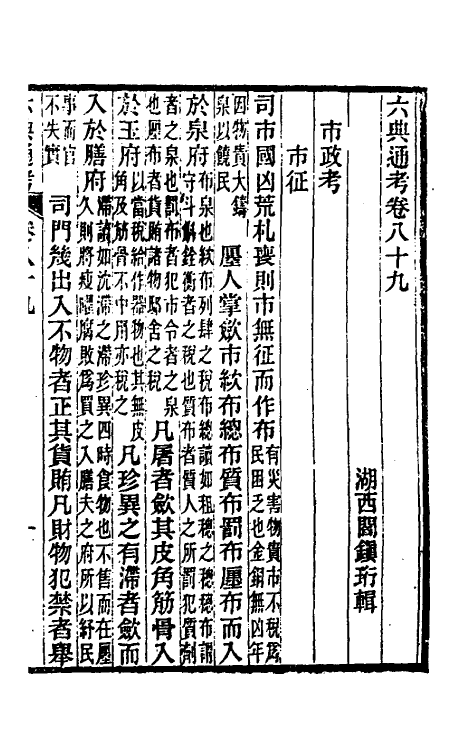 六典通考卷八十九
湖西閻鎮珩輯
市政考
市征
司市國凶荒札喪則市無征而作布有災害物貨市不稅爲民困乏也金銅無凶年
因物貴大鑄泉以饒民廛人掌斂市絘布總布質布罰布廛布而入
於泉府布泉也絘布列肆之稅布總讀如租穗之穗穗布謂守斗斛銓衡者之稅也質布者質人之所罰犯質劑
者之泉也罰布者犯市令者之泉也廛布者貨賄諸物邸舍之稅凡屠者斂其皮角筋骨入
於玉府以當稅給作器物也其無皮角及筋骨不中用亦稅之凡珍異之有滯者斂而
入於膳府滯讀如沈滯之滯珍異四時食物也不售而在廛久則將瘦臞腐敗爲買之入膳夫之府所以紓民
事而官不失實司門幾出入不物者正其貨賄凡財物犯禁者舉
六典通考 卷八十九 一